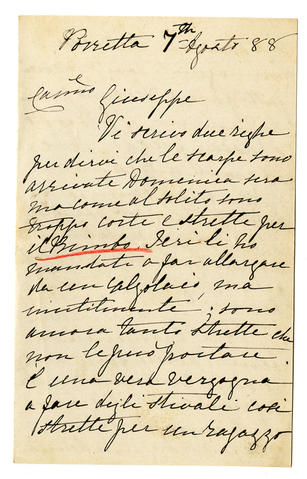 Beretta 7th Agosto 88
Carmo Giuseppe
Vi scrivo due righe
per dirvi che le scarpe sono
arrivate Domenica sera
ma come al solito sono
troppo corte e strette per
il Bimbo. Jeri li ho
mandate a far allargare
da un calzolaio, ma
inutilmente; sono
ancora tanto strette che
non le può portare
È una vera vergogna
a fare degli stivali così
strette per un ragazzo